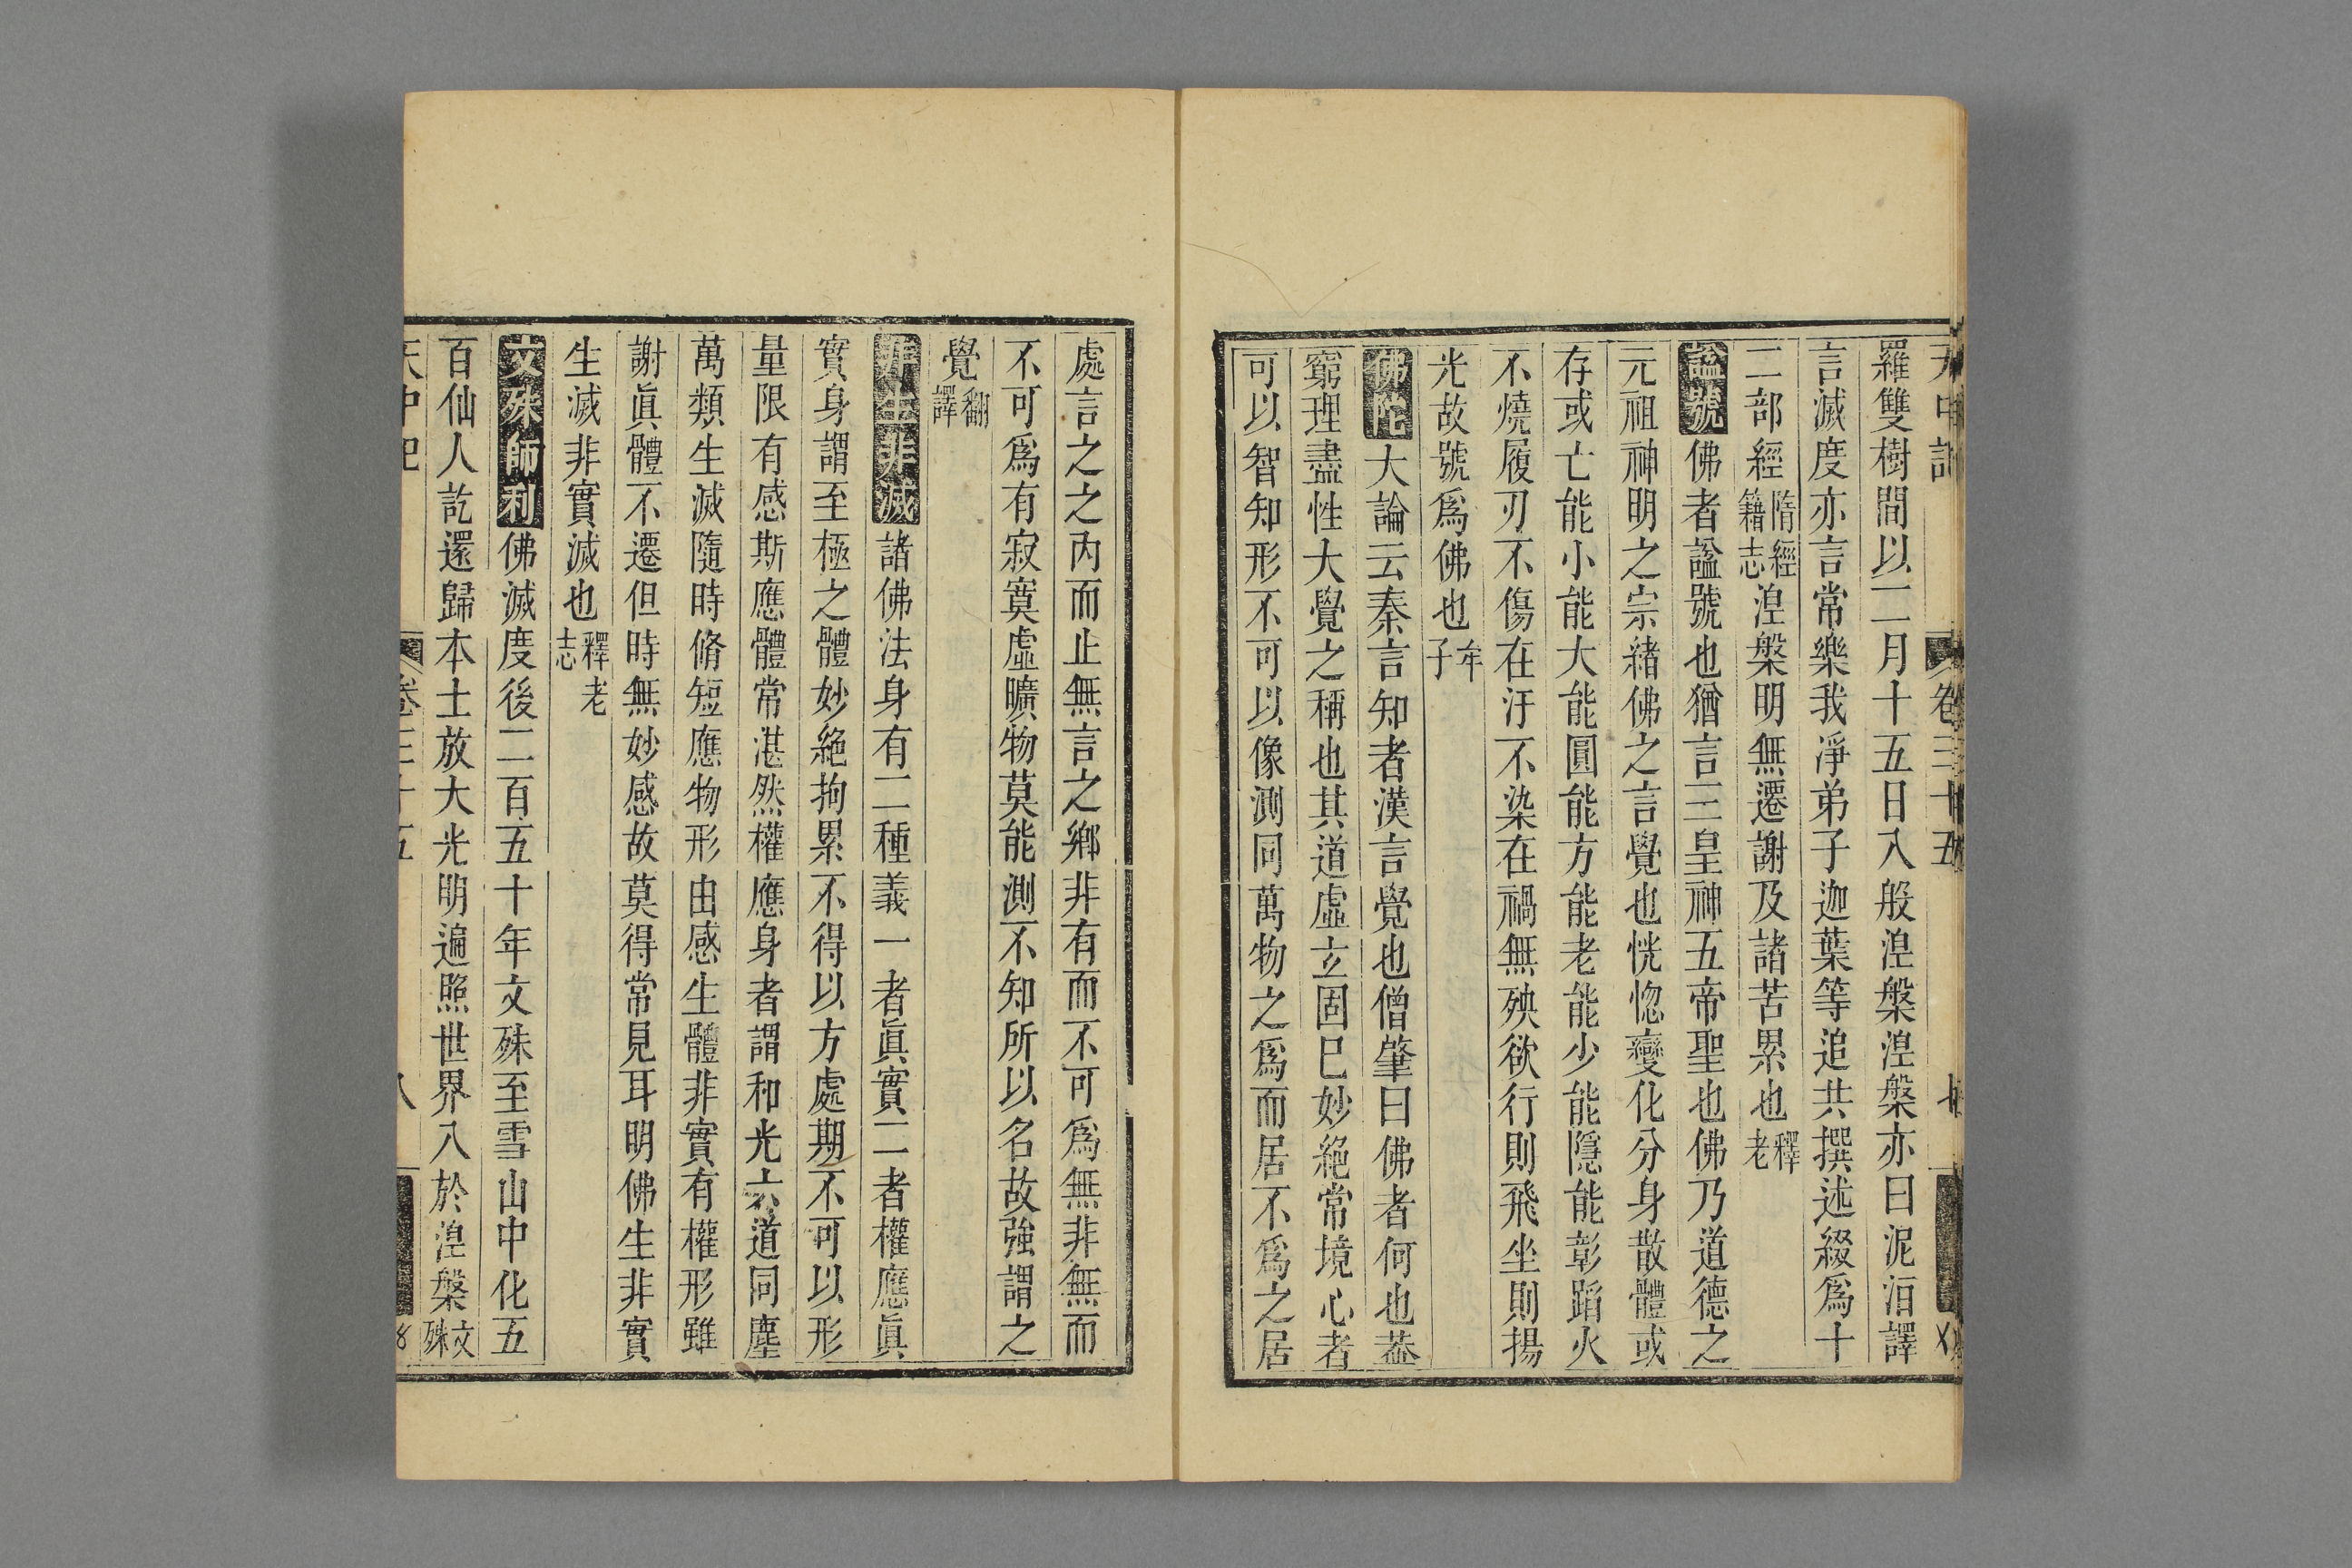 天中記 卷三十五 七
羅雙樹間以二月十五日入般湼槃湼槃亦曰泥洹譯
言滅度亦言常樂我凈弟子迦葉等追共撰述綴爲十
二部經隋經籍志湼槃明無遷謝及諸苦累也釋老
謚號佛者謚號也猶言三皇神五帝聖也佛乃道德之
元祖神明之宗緒佛之言覺也恍惚變化分身散體或
存或亡能小能大能圓能方能老能少能隱能彰蹈火
不燒履刃不傷在汙不染在禍無殃欲行則飛坐則揚
光故號爲佛也牟子
佛陀大論云秦言知者漢言覺也僧肇曰佛者何也葢
窮理盡性大覺之稱也其道虛玄固巳妙絶常境心者
可以智知形不可以像測同萬物之爲而居不爲之居
處言之之内而止無言之鄉非有而不可爲無非無而
不可爲有寂寞虛曠物莫能測不知所以名故強謂之
覺翻譯
非生非滅諸佛法身有二種義一者眞實二者權應眞
實身謂至極之體妙絶拘累不得以方處期不可以形
量限有感斯應體常湛然權應身者謂和光六道同塵
萬類生滅隨時脩短應物形由感生體非實有權形雖
謝眞體不遷但時無妙感故莫得常見耳明佛生非實
生滅非實滅也釋老志
文殊師利佛滅度後二百五十年文殊至雪山中化五
百仙人訖還歸本土放大光明遍照世界入於湼槃文殊
天中記 卷三十五 八